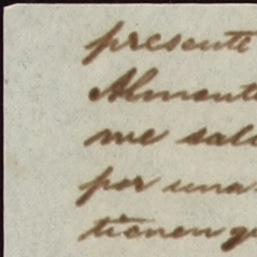 presente
Almont
me sal
por una
tienen q